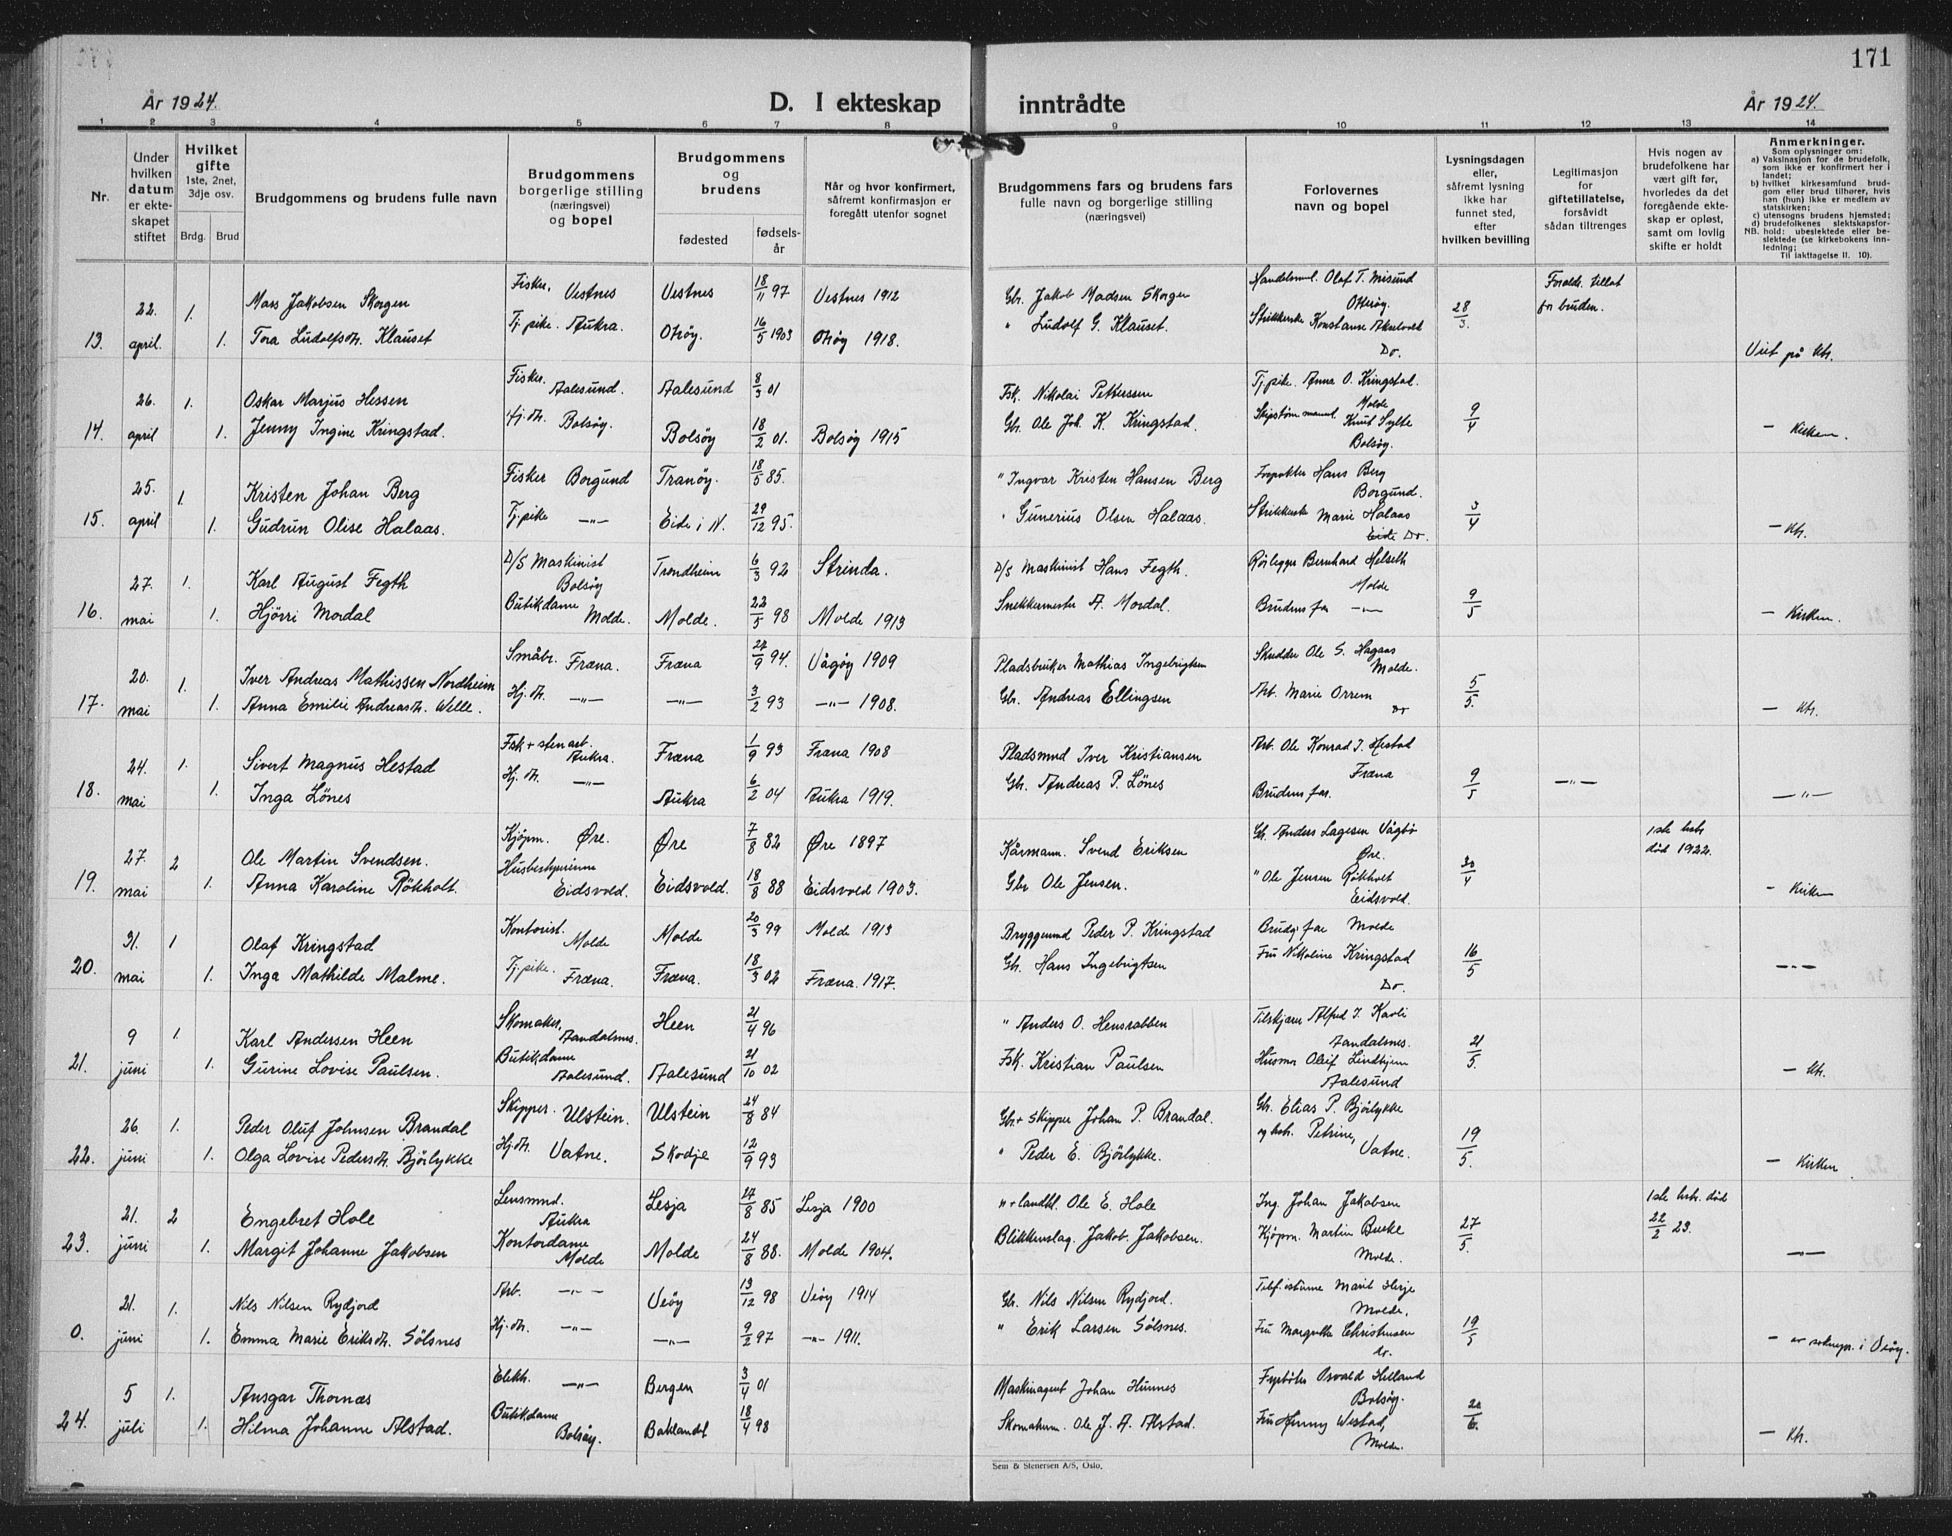 171
År 1924.
D. I ekteskap inntrådte
År 1924.
1 2 3 4 5 6 7 8 9 10 11 12 13 14
Nr.
Under hvilken datum er ekteskapet stiftet
Hvilket gifte 1ste, 2net, 3dje osv.
Brdg. Brud
Brudgommens og brudens fulle navn
Brudgommens borgerlige stilling (næringsvei) og bopel
Brudgommens og brudens
fødested
fødselsår
Når og hvor konfirmert, såfremt konfirmasjon er foregått utenfor sognet
Brudgommens fars og brudens fars fulle navn og borgerlige stilling (næringsvei)
Forlovernes navn og bopel
Lysningsdagen eller, såfremt lysning ikke har funnet sted, efter hvilken bevilling
Legitimasjon for giftetillatelse, forsåvidt sådan tiltrenges
Hvis nogen av brudefolkene har vært gift før, hvorledes da det foregående ekteskap er opløst, samt om lovlig skifte er holdt
Anmerkninger.
Som oplysninger om:
a) Vaksinasjon for de brudefolk, som ikke er konfirmert her i landet;
b) hvilket kirkesamfund brudgom eller brud tilhører, hvis han (hun) ikke er medlem av statskirken;
c) utensogns brudens hjemsted;
d) brudefolkenes slektskapsforhold: ubeslektede eller beslektede (se kirkebokens innledning;
NB. Til iakttagelse II. 10).
22. 1. Mars Jakobsen Skorgen Fisker, Vestnes Vestnes 18/11 97 Vestnes 1912 Gbr. Jakob Madsen Skorgen Handelsml. Olaf T. Misund Otterøy. 28/3. Foreldr. tillat for bruden.
13. april. 1. Tora Ludolfsdtr. Klauset Tj.pike. Aukra. Otrøy. 16/5 1903 Otrøy 1918. " Ludolf G. Klauset. Konstanse Do. Viet på ktr.
26. 1. Oskar Marjus Hessen Fisker. Aalesund. Aalesund 8/3 01 Fsk. Nikolai Petterssen Tj.pike. Anna O. Kringstad. Molde 9/4
14. april 1. Jenny Ingine Kringstad. Hj.dtr. Bolsøy. Bolsøy 18/2 01. Bolsøy 1915 Gbr. Ole Joh. K. Kringstad. Knut Sylte Bolsøy. - Kirken.
25. 1. Kristen Johan Berg Fisker Borgund Tranöy. 18/5 85. " Ingvar Kristen Hansen Berg Hans Berg Borgund. 3/4
15. april 1. Gudrun Olise Halaas. Tj.pike -"- Eide i N. 29/12 95. " Gunerius Olsen Halaas. Marie Halaas Eide Do. - Ktr.
27. 1. Karl August Fegth D/S Maskinist Bolsøy Trondheim 6/3 92 Strinda. D/S Maskinist Hans Fegth. Rörlegger Bernhard Helseth Molde 9/5
16. mai 1. Hjørri Mordal Butikdame Molde. Molde. 22/5 98 Molde 1913 Snekkermester A. Mordal. Brudens far -"- - Kirken.
20. 1. Iver Andreas Mathissen Nordheim Småbr. Fræna. Fræna 24/9 94. Vågøy 1909 Pladsbruker Mathias Ingebrigtsen Ole S. Hagaas Molde. 5/5.
17. mai 1. Anna Emilie Andreasdtr. Welle. Hj.dtr. -"- -"- 3/2 93 -"- 1908. Gbr. Andreas Ellingsen Arb. Marie Orrem Do - Ktr.
24. 1. Sivert Magnus Hestad Fsk + stenarb. Aukra. Fræna 1/9 93 Fræna 1908 Pladsmnd Iver Kristiansen Arb. Ole Konrad I. Hestad Fræna 9/5 -"-
18. mai 1. Inga Lönes Hj.dtr. -"- Aukra 6/2 04 Aukra 1919. Gbr. Andreas P. Lönes Brudens far. -"-
27. 2 Ole Martin Svendsen. Kjøpm. Øre. Øre 7/8 82 Øre 1897 Kårmann. Svend Eriksen Gbr. Anders Lagesen Vågbø Øre. 30/4 1ste hstr. död 1922.
19. mai 1. Anna Karoline Rökholt. Husbestyrerinne Eidsvold. Eidsvold. 18/8 88 Eidsvold 1903. Gbr Ole Jensen. " Ole Jensen Rökholt Eidsvold. - Kirken
31. 1 Olaf Kringstad Kontorist. Molde Molde 20/3 99 Molde 1913 Bryggemnd Peder P. Kringstad Brudg. far Molde 16/5
20. mai 1. Inga Mathilde Malme. Tj.pike. Fræna. Fræna. 18/3 02 Fræna 1917. Gbr. Hans Ingebrigtsen Fru Nikoline Kringstad Do. -"-
9 1. Karl Andersen Heen Skomaker, Aandalsnes. Heen 21/4 96 " Anders O. Hensrabben Alfred I. Kavli Aandalsnes. 21/5.
21. juni 1. Gurine Lovise Paulsen. Butikdame Aalesund. Aalesund 21/10 02 Fsk. Kristian Paulsen Husmor Lindhjem Aalesund - Ktr.
26. 1. Peder Oluf Johnsen Brandal Skipper. Ulstein. Ulstein 24/8 84 Gbr + Skipper Johan P. Brandal. Gbr. Elias P. Bjørlykke 19/5.
22. juni 1. Olga Lovise Pedersdtr. Bjørlykke Hj.dtr. Vatne. Skodje 12/9 93 " Peder E. Bjørlykke. og hstr. Petrine, Vatne. - Kirken
21. 2 Engebret Hole Lensmnd. Aukra Lesja 27/8 85 Lesja 1900 " + landhl. Ole E. Hole Ing. Johan Jakobsen 27/5. 1ste hstr. död 22/2 23.
23. juni 1. Margit Johanne Jakobsen Kontordame Molde Molde 24/8 88. Molde 1904. Blikkenslag. Jakob Jakobsen. Kjøpm. Martin Molde. -"-
21. 1. Nils Nilsen Rydjord Arb. -"- Veøy 13/12 98 Veøy 1914 Gbr. Nils Nilsen Rydjord. Marit Herje Molde. 19/5
0. juni 1. Emma Marie Eriksdtr. Sölsnes Hj.dtr. -"- -"- 9/2 97 -"- 1911. " Erik Larsen Sölsnes. Fru Margrethe Christensen do. - av soknepr. i Veøy.
5 1. Ansgar Thornæs Elektr. -"- Bergen 3/4 01 Maskinagent Johan Hunnes Fyrbøter Osvald Helland Bolsøy. 20/6.
24. juli 1. Hilma Johanne Alstad. Butikdame Bolsøy. Baklandet 18/4 98 Skomakerm. Ole J. A. Alstad. Fru Henny Westad, Molde. - Ktr.
Sem & Stenersen A/S, Oslo.